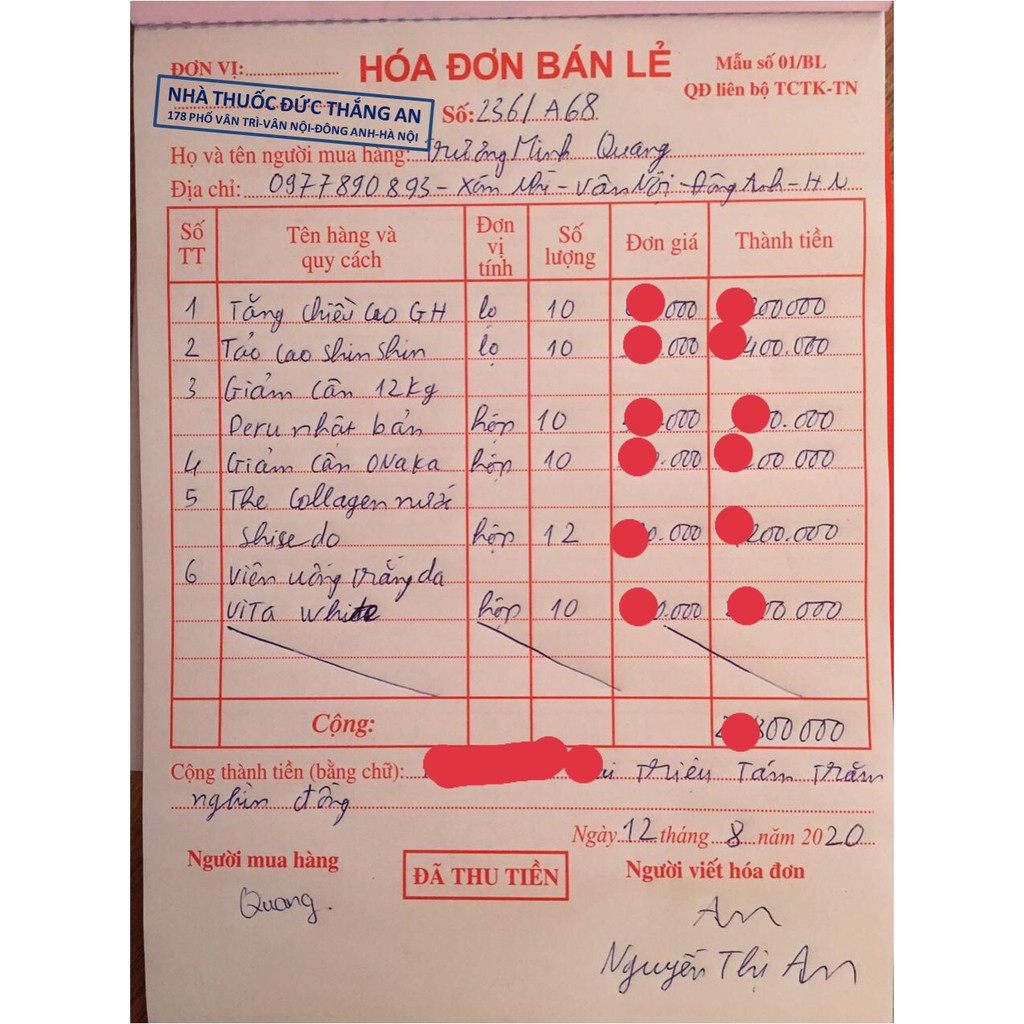 ĐƠN VỊ:
HÓA ĐƠN BÁN LẺ
Mẫu số 01/BL
QĐ liên bộ TCTK-TN
NHÀ THUỐC ĐỨC THẮNG AN
178 PHỐ VÂN TRÌ-VÂN NỘI-ĐÔNG ANH-HÀ NỘI
Số: 2361A68
Họ và tên người mua hàng: Trương Minh Quang
Địa chỉ: 0977890893 - Xóm Nhì - Vân Nội - Đông Anh - HN
Số TT Tên hàng và quy cách Đơn vị tính Số lượng Đơn giá Thành tiền
1 Tăng chiều cao GH lọ 10 000 200000
2 Tảo cao shin shin lọ 10 .000 400.000
3 Giảm cân 12kg
Peru nhật bản hộp 10 .000 0.000
4 Giảm cân ONaKa hộp 10 .000 200 000
5 The Collagen nước
shisedo hộp 12 0.000 200.000
6 viên uống trắng da
viTa white hộp 10 0.000 00 000
Cộng: 2 800 000
Cộng thành tiền (bằng chữ): Triệu Tám Trăm
nghìn đồng
Ngày 12 tháng 8 năm 2020
Người mua hàng
ĐÃ THU TIỀN
Người viết hóa đơn
Quang
An
Nguyễn Thị An